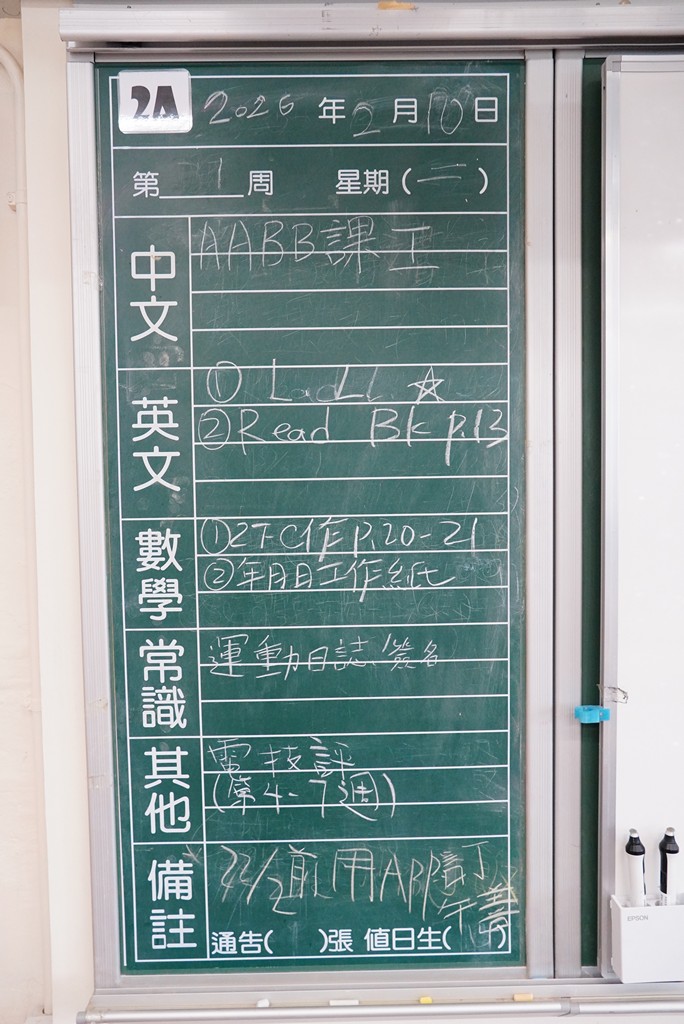 2A 2026 年 2 月 10 日
第 1 周 星期(二)
中文
AABB課工
英文
① LadLL ☆
② Read Bk p.13
數學
① 2下C作 p.20-21
② 年月日工作紙
常識
運動日誌簽名
其他
電技評
(第4-7週)
備註
*22/2前用APP訂
午膳
通告( )張 值日生( )
EPSON